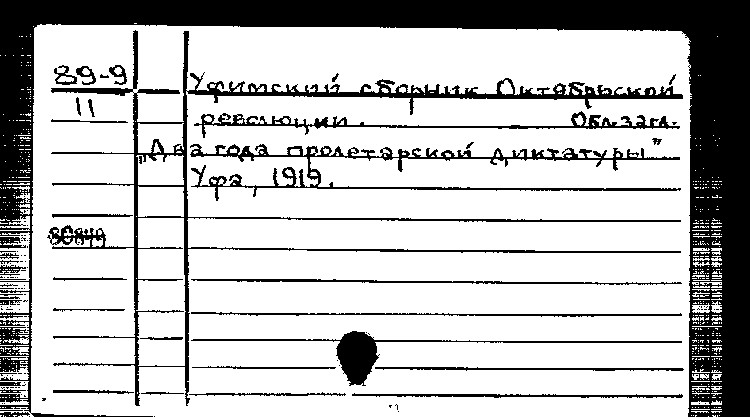 89-9
11
Уфимский сборник Октябрьской
революции. Обл. загл.
„Два года пролетарской диктатуры"
Уфа, 1919.
80849